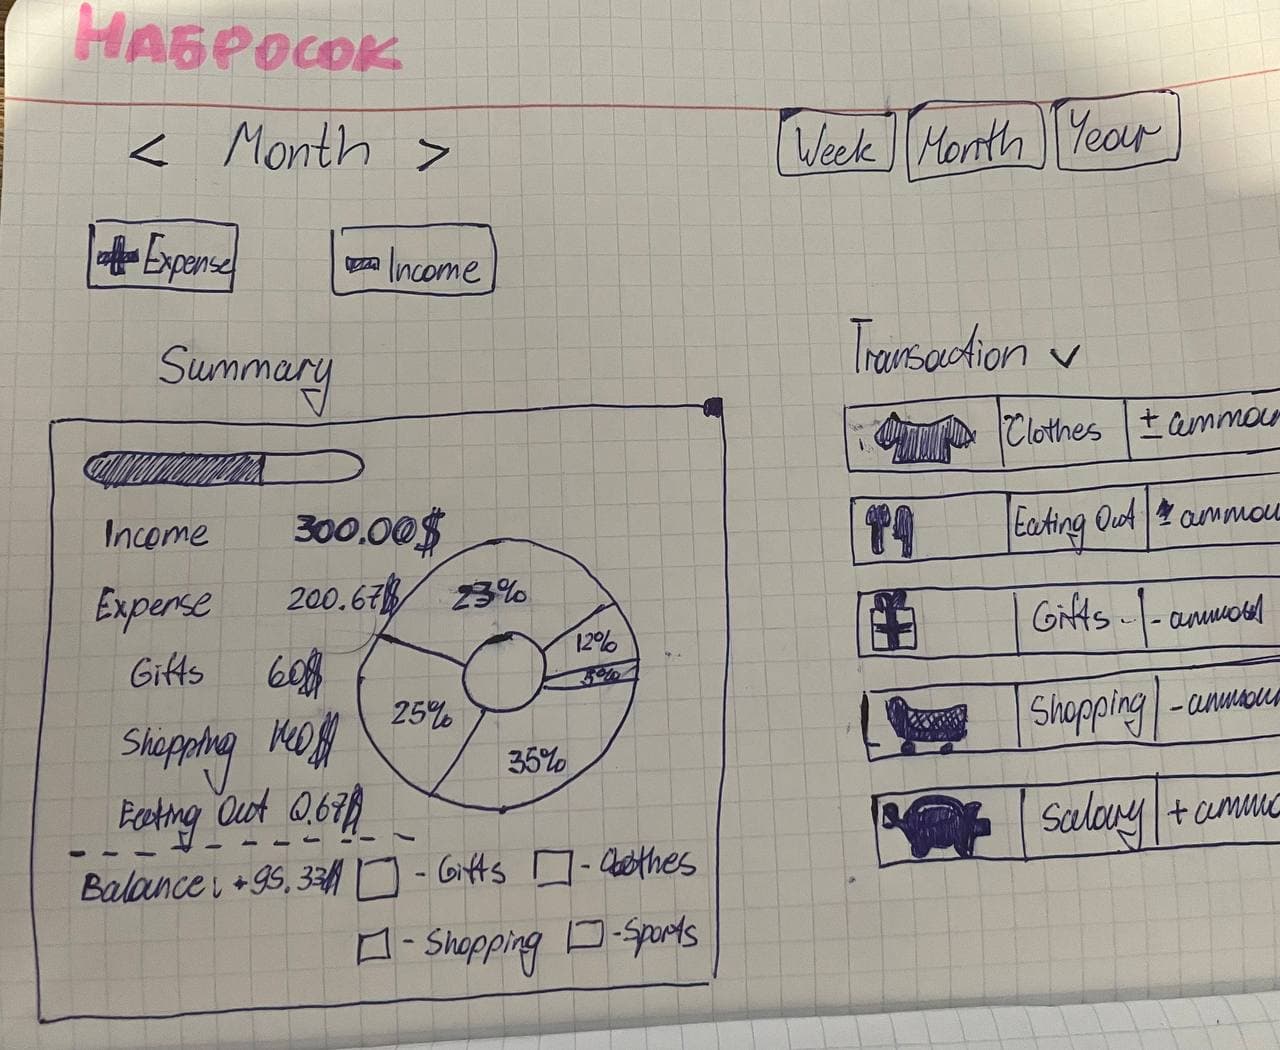 НАБРОСОК
< Month >
Week Month Year
+ Expense - Income
Summary
Income 300.00$
Expense 200.67$
Gifts 60$
Shopping 140$
Eating Out 0.67$
Balance: +95.33$
23%
12%
5%
25%
35%
- Gifts - Clothes
- Shopping - Sports
Transaction
Clothes ± ammou
Eating Out ± ammou
Gifts - ammout
Shopping - ammou
Salary + ammo